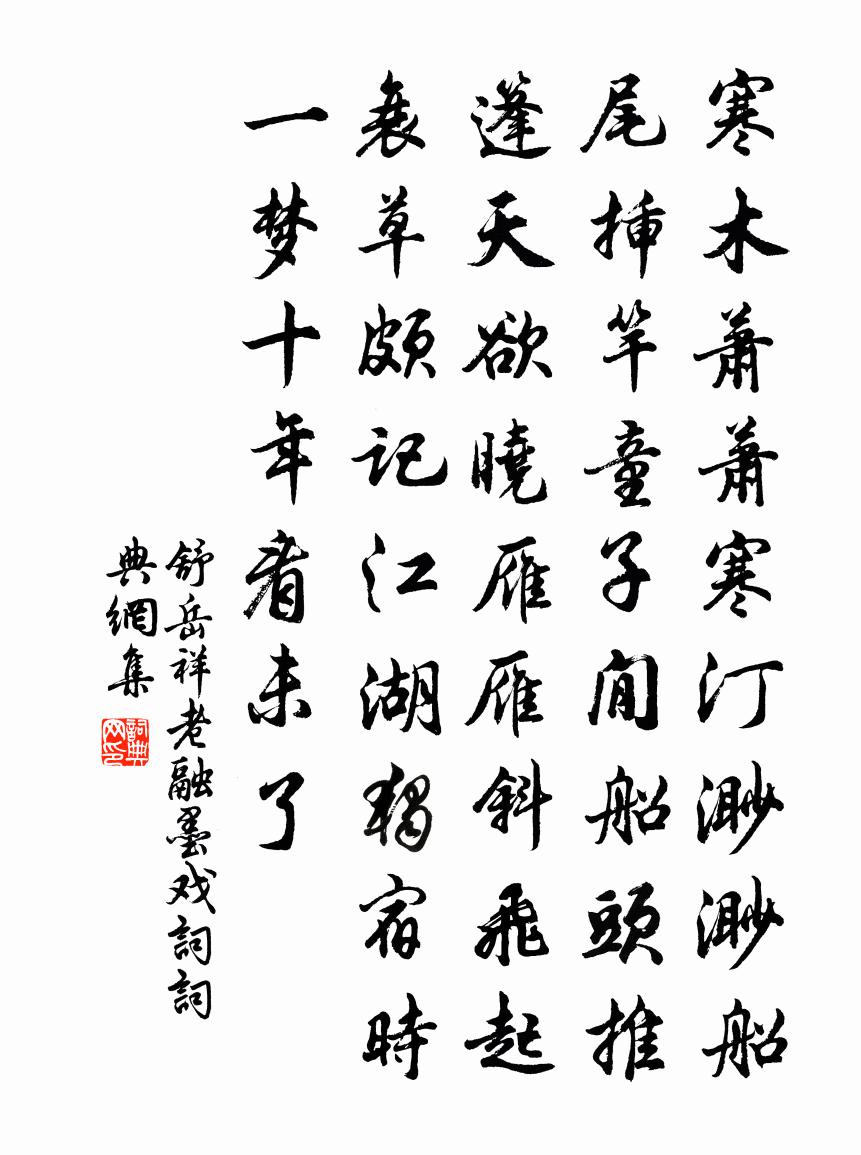 寒木萧萧寒汀渺渺船
尾插竿童子闲船頭推
篷天欲曉雁雁斜飛起
衰草頗记江湖独宿時
一梦十年看未了
舒岳祥老融墨戏詞詞
典網集
詞典网印